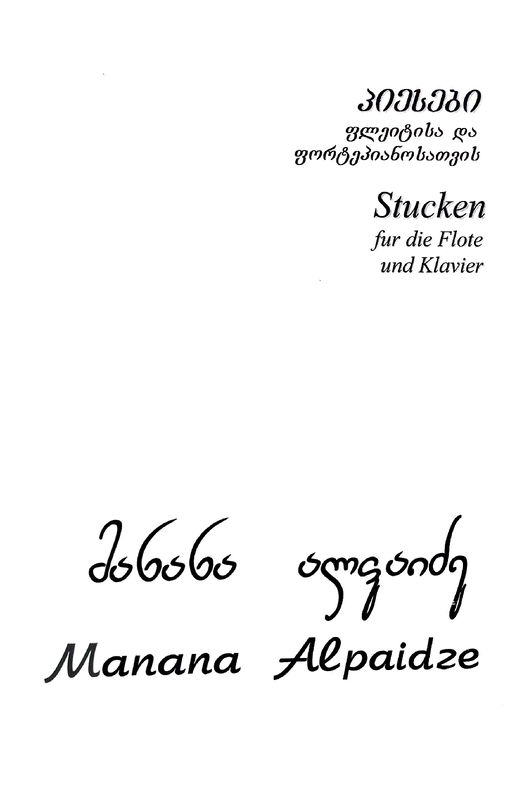 პიესები
ფლეიტისა და
ფორტეპიანოსათვის
Stucken
fur die Flote
und Klavier
მანანა ალფაიძე
Manana Alpaidze